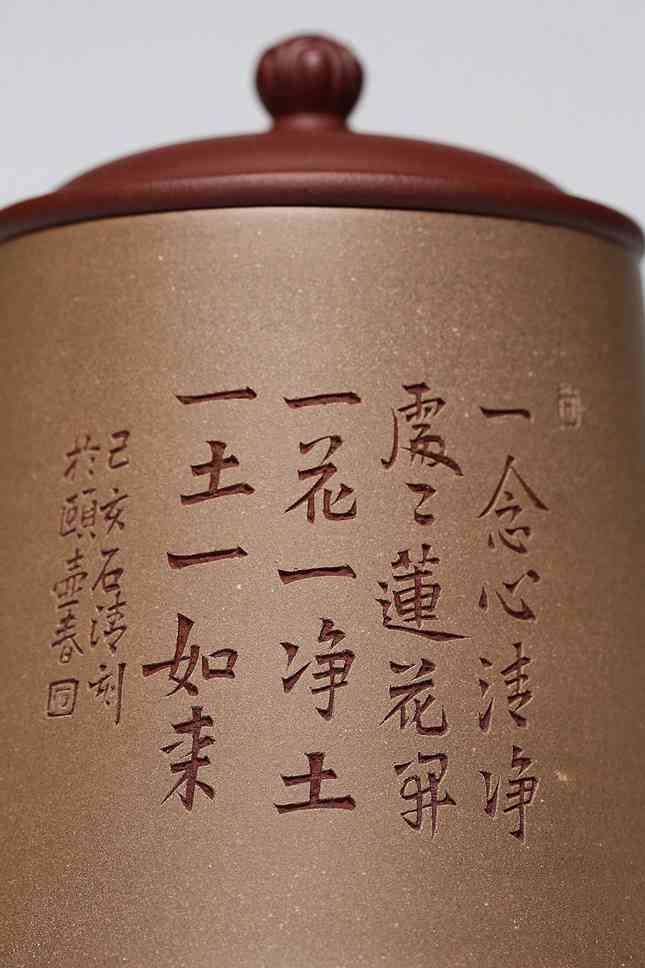 一念心清净
處〻蓮花𦕈
一花一净土
一土一如来
己亥石清刻
於頤壺春